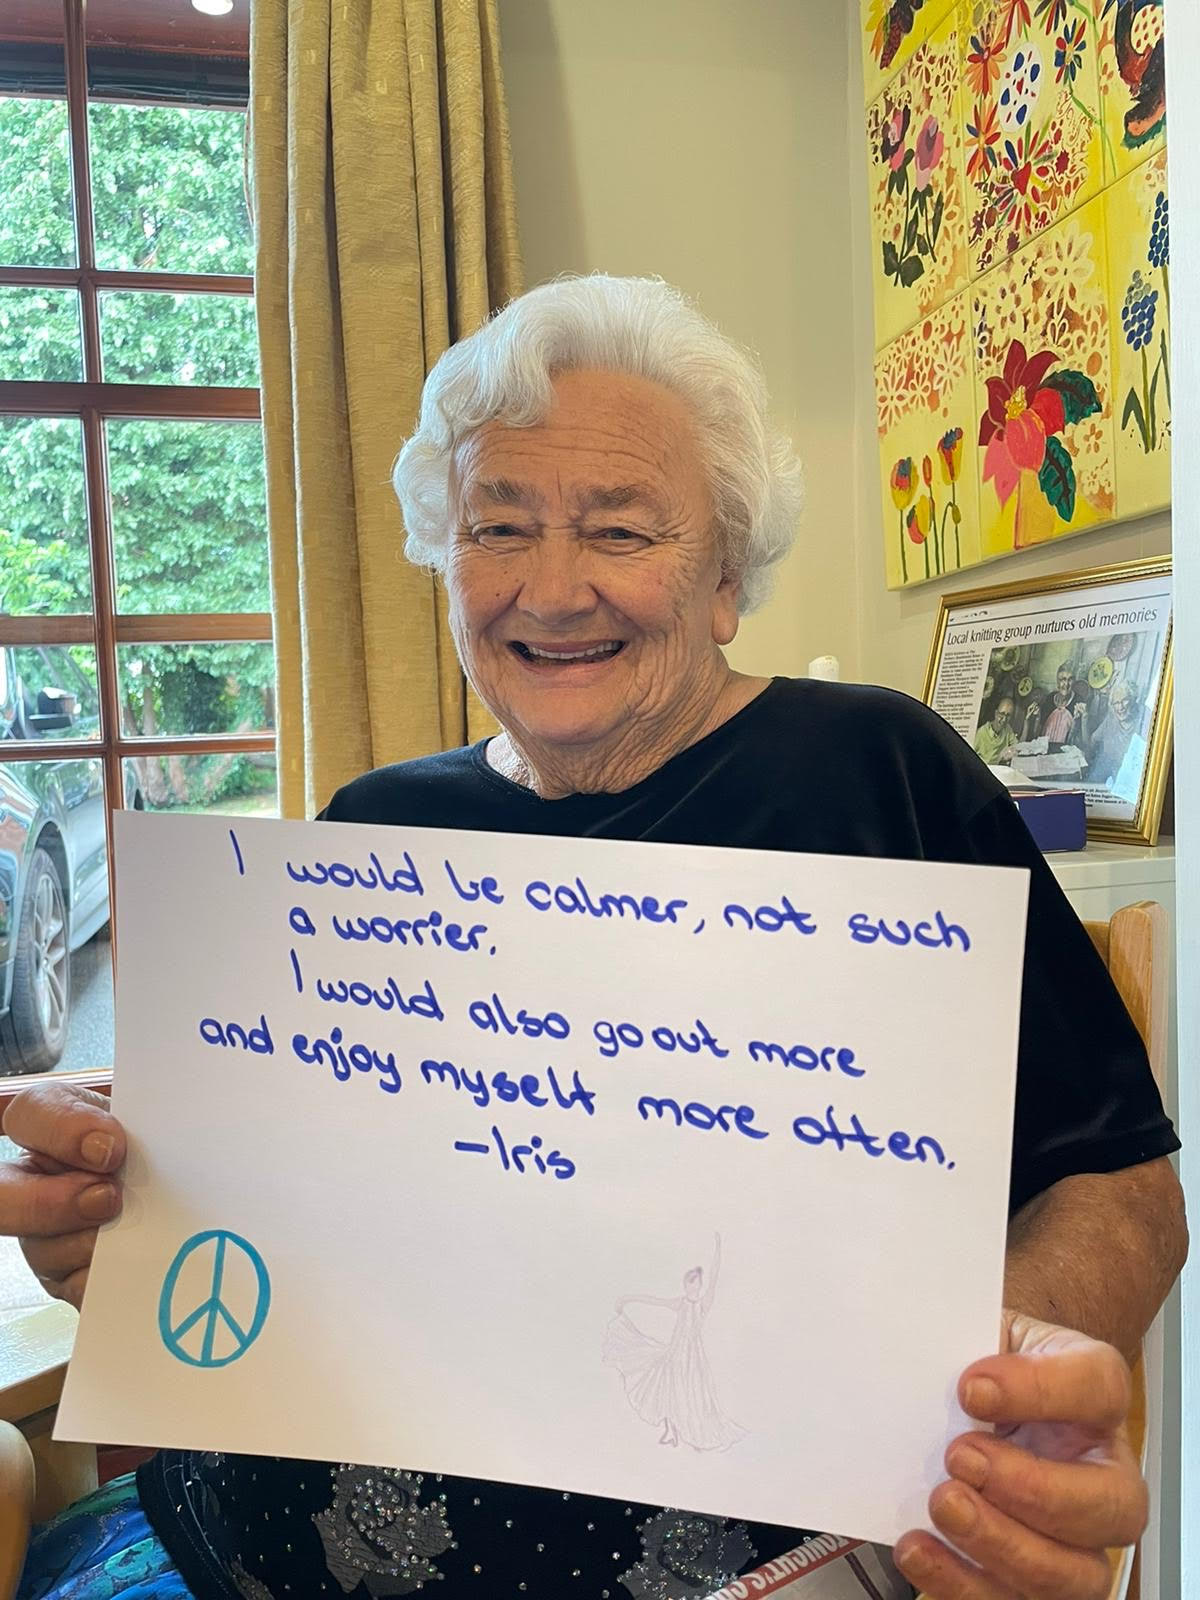 I would be calmer, not such
a worrier.
I would also go out more
and enjoy myself more often.
-Iris
Local knitting group nurtures old memories